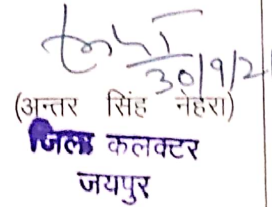 30/9/2
(अन्तर सिंह नेहरा)
जिला कलक्टर
जयपुर